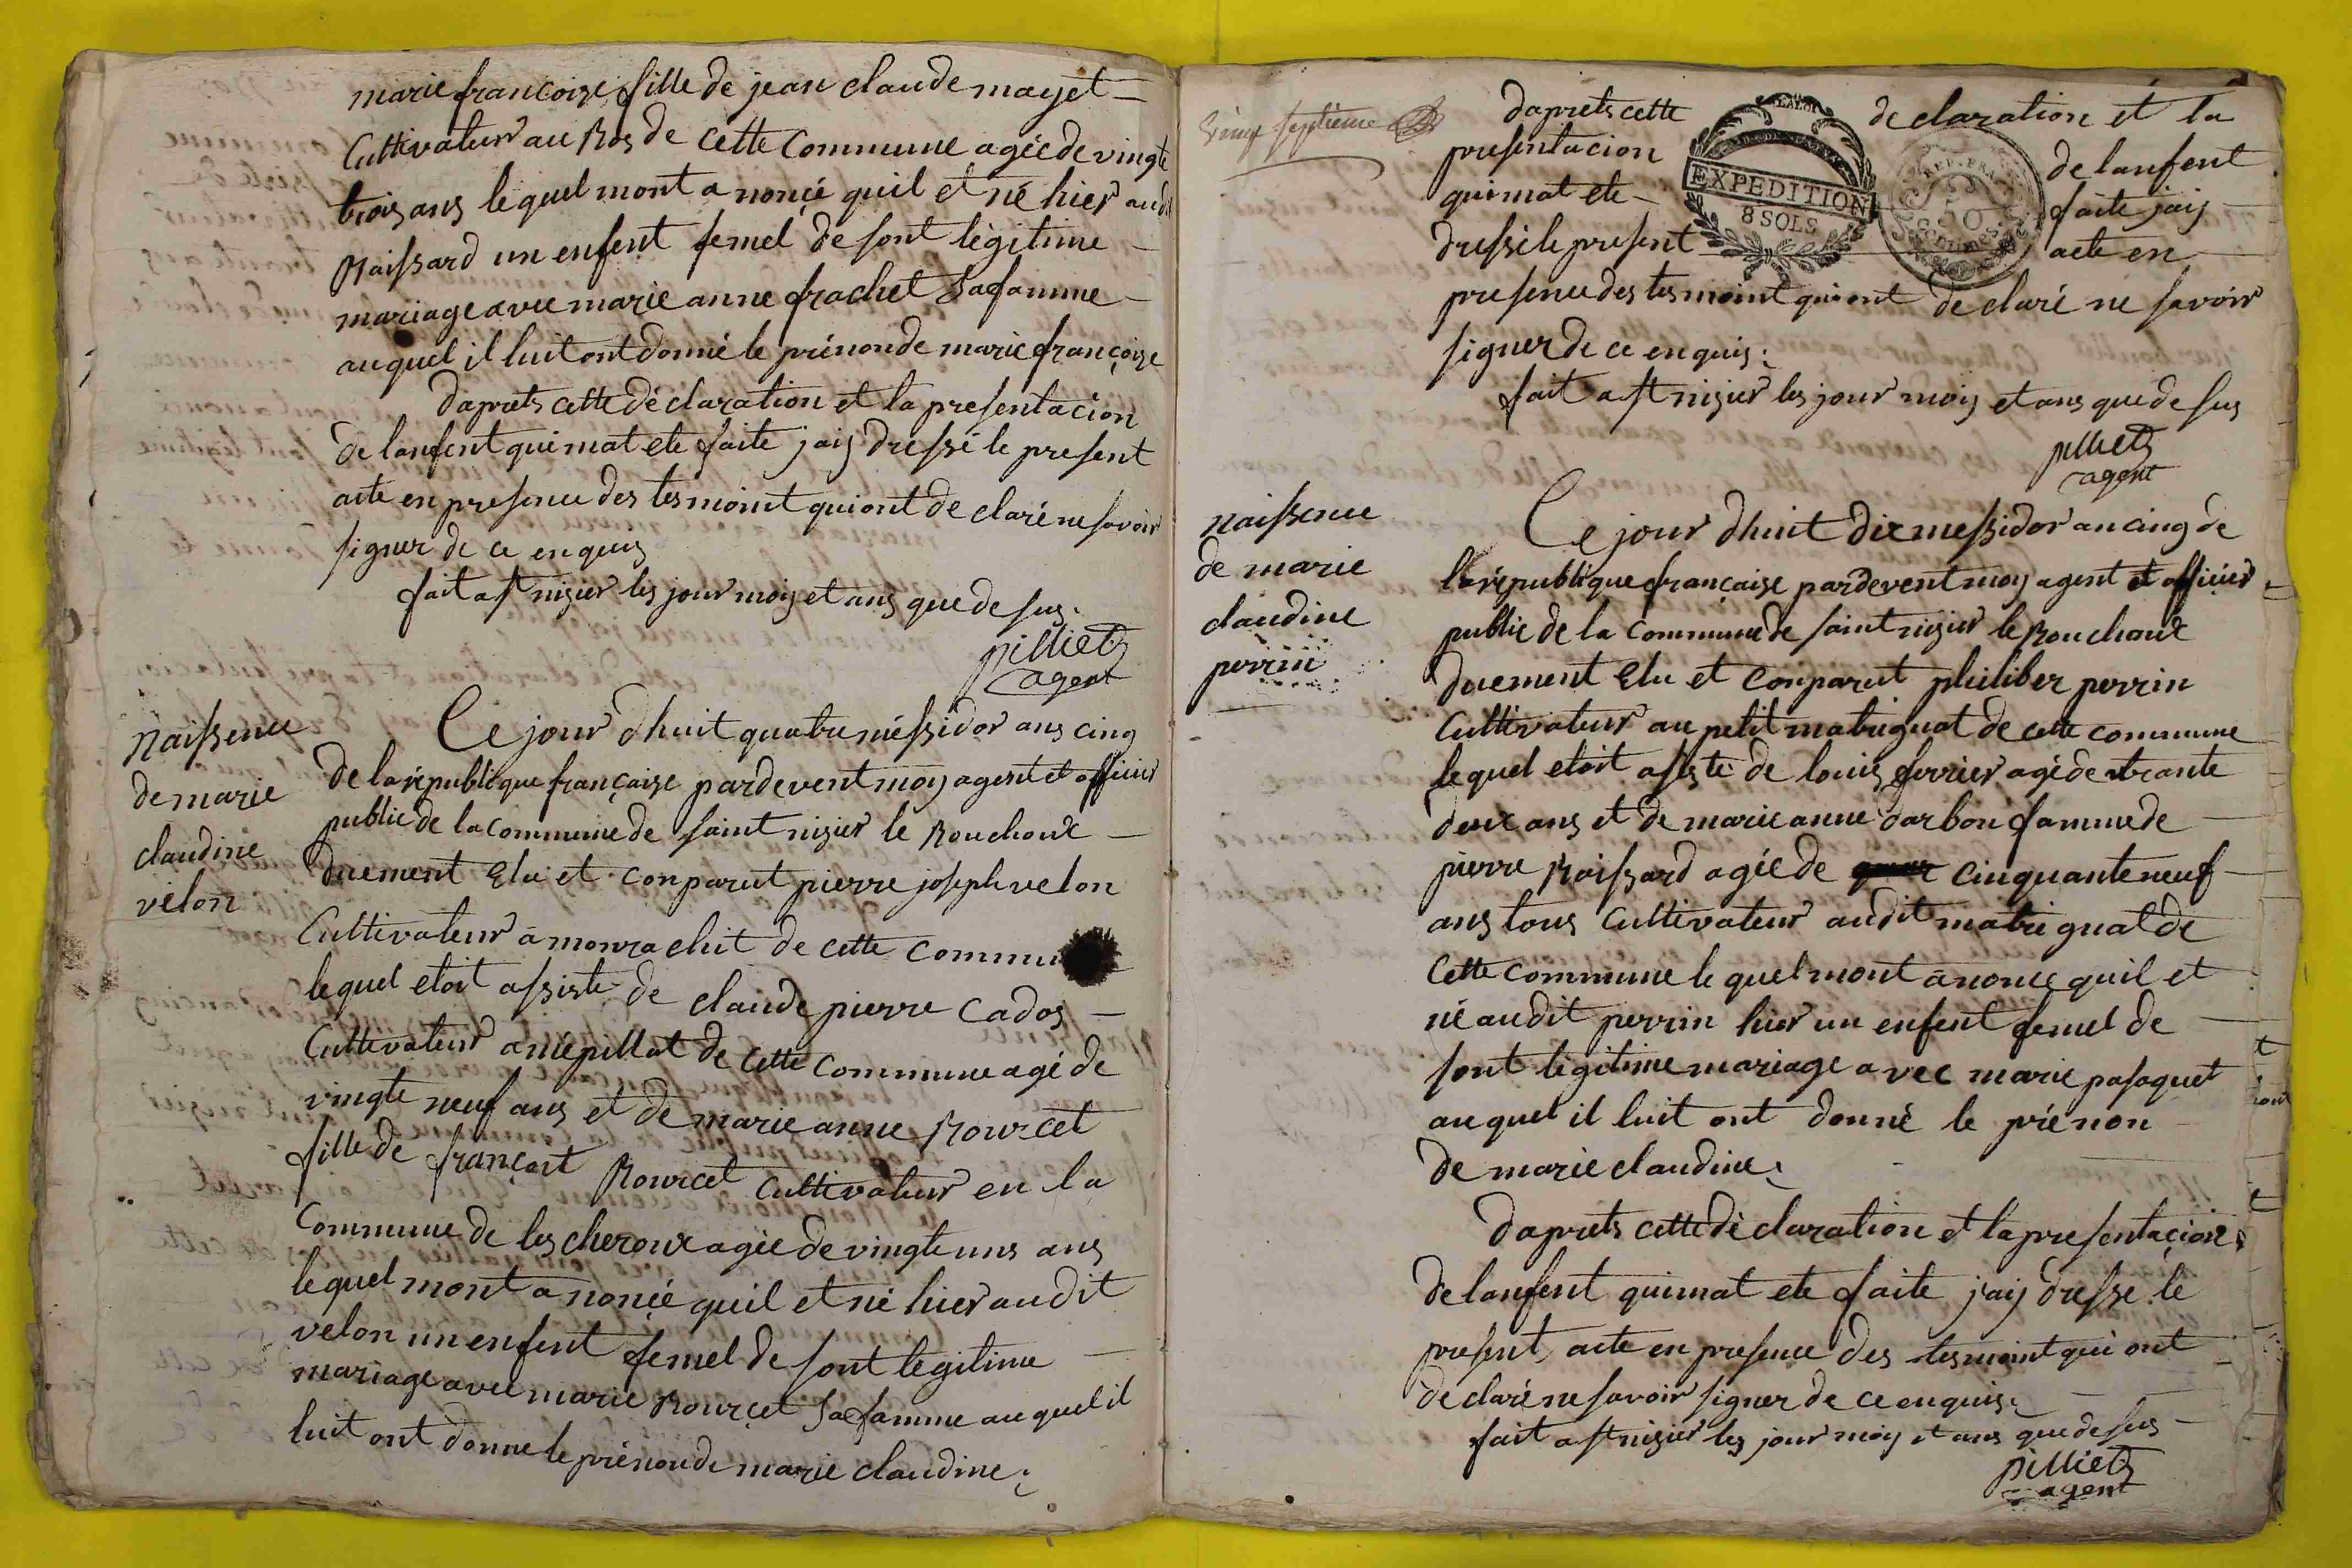 marie francoize fille de jean claude mayet
Cultivateur au Ros de cette Commune agée de vingte
trois ans lequel mont a noncé quil et né hier audi
Raissard un enfent femel de sont légitime
mariage avec marie anne frachet sa famme
auquel il luit ont donné le prénon de marie françoize
daprets cette déclaration et la presentacion
de lanfent qui mat ete faite jaij dressé le present
acte en presence des tesmoint qui ont declaré ne savoir
signer de ce enquis
fait a st nizier les jour mois et ans que de sus.
pilliet
agent
Naissence
de marie
claudine
vélon
Ce jour dhuit quatre méssidor ans cinq
de la république françaize pardevent moy agent et officier
public de la Commune de saint nizier le Bouchoux
duement Elu et conparut pierre joseph velon
Cultivateur a mourachit de cette commu
lequel etoit assisté de claude pierre Cados
Cultivateur a mépillat de cette Commune agé de
vingte neuf ans et de marie anne Rourcet
fille de françoit Rourcet Cultivateur en la
Commune de les cheroux agée de vingte uns ans
lequel mont a noncé quil et né hier audit
velon un enfent femel de sont legitime
mariage avec marie Rourcet sa famme auquel il
luit ont donne le prénon de marie claudine.
vingt septieme
daprets cette declaration et la
presentacion de lanfent
qui mat ete faite jaij
dressé le present acte en
EXPEDITION
8 SOLS
REP. FRA.
50
Centimes
presence des tesmoint qui ont declaré ne savoir
signer de ce enquis.
fait a st nizier les jour mois et ans que de sus
pilliet
agent
Naissence
de marie
claudine
perrin
Ce jour dhuit dix messidor an cinq de
la république françaize pardevent moy agent et officier
public de la Commune de saint nizier le Bouchoux
duement Elu et Conparut philiber perrin
Cultivateur au petit matrignat de cette commune
lequel etoit assisté de louis ferrier agé de trante
deux ans et de marie anne darbon famme de
pierre Raissard agée de cinquante neuf
ans tous Cultivateur audit matrignat de
Cette commune lequel mont a nonce quil et
né audit perrin hier un enfent femel de
sont légitime mariage avec marie pasaquet
auquel il luit ont donné le prénon
de marie claudine.
daprets cette déclaration et la presentacion
de lanfent qui mat ete faite jaij dresse le
present acte en presence des tesmoint qui ont
declaré ne savoir signer de ce enquis.
fait a st nizier les jour mois et ans que de sus
pilliet
agent